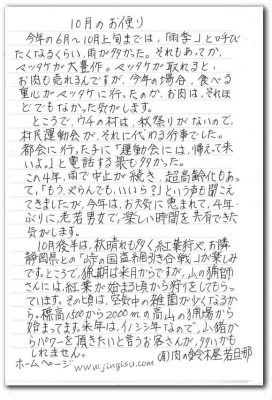 10月のお便り
今年の6月〜10月上旬までは、「雨季」と呼び
たくなるくらい、雨が多かった。それもあってか、
ベッタケが大豊作。ベッタケが取れると、
お肉も売れるんですが、今年の場合、食べる
重心がベッタケに行ったのか、お肉は、それほ
どでもなかった気がします。
ところで、ウチの村は、秋祭りがないので、
村民運動会が、それに代わる行事でした。
都会に行った子に「運動会には、帰えって来
いよ。」と電話する親も多かった。
この4年、雨で中止が続き、超高齢化もあっ
て、「もう、やらんでも、いいら?」という声も聞こえ
てきましたが、今年は、お天気に恵まれて、4年
ぶりに、老若男女で、楽しい時間を共有できた
気がします。
10月後半は、秋晴れも多く紅葉狩りや、お隣
静岡県との「峠の国盗綱引き合戦」が楽しみ
です。ところで、猟期は来月からですが、山の猟師
さんには、紅葉が始まる頃から狩りをしてもらっ
ています。その頃は、空気中の雑菌が少なくなるか
ら。標高1500から2000mの高山の猟場から
始まってます。来年は、イノシシ年なので、山猪か
らパワーを頂きたいと言うお客さんが、多いかも
しれません。
ホームページ www.jingisu.com (有)肉の鈴木屋 若旦那